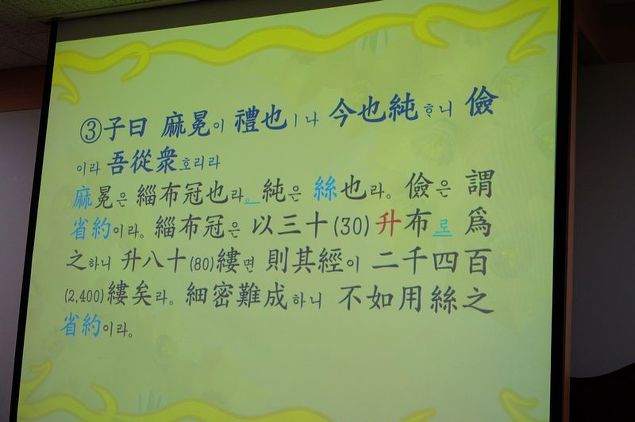 ③子曰 麻冕이 禮也ㅣ나 今也純ᄒᆞ니 儉
이라 吾從衆호리라
麻冕은 緇布冠也라。純은 絲也라。儉은 謂
省約이라。緇布冠은 以三十(30)升布로 爲
之하니 升八十(80)縷면 則其經이 二千四百
(2,400)縷矣라。細密難成하니 不如用絲之
省約이라。